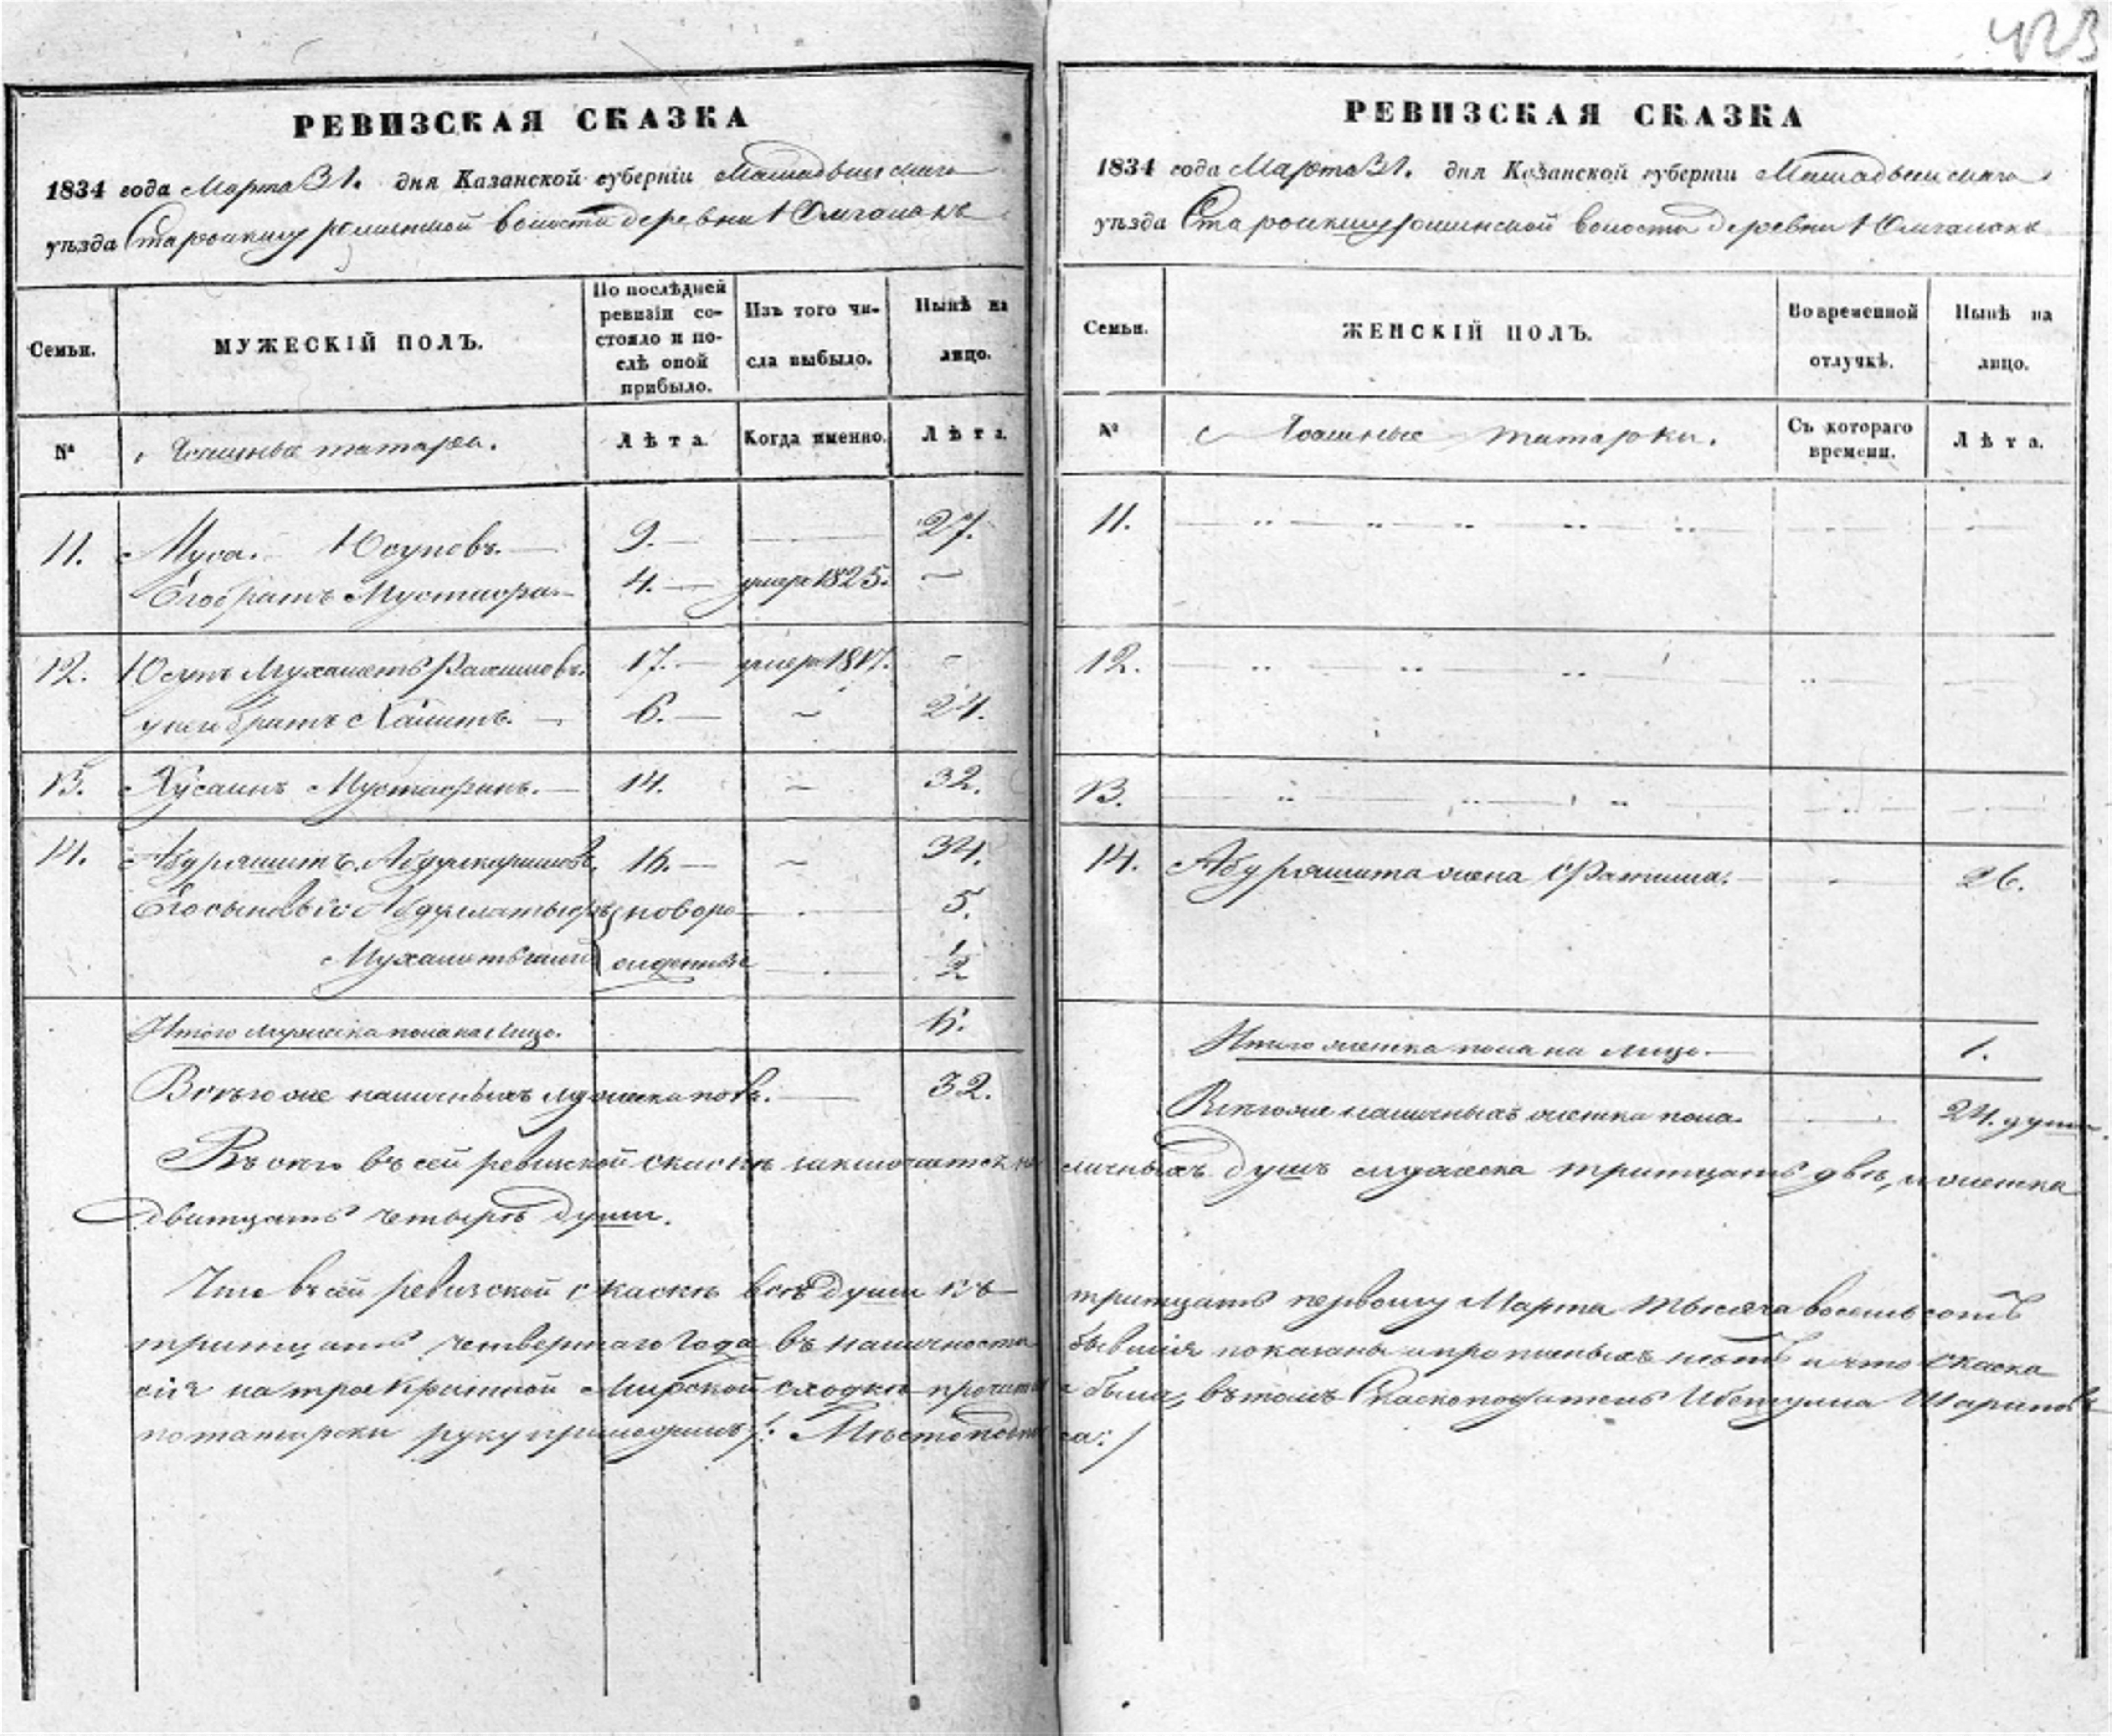 423
РЕВИЗСКАЯ СКАЗКА
1834 года Марта 31. дня Казанской губерніи Мамадышскаго
уѣзда волости деревни Юлгаманъ
Семьи.
МУЖЕСКІЙ ПОЛЪ.
По послѣдней ревизіи состояло и послѣ оной прибыло.
Изъ того числа выбыло.
Нынѣ на лицо.
№
татара.
Лѣта.
Когда именно.
Лѣта.
11. Муса. Юсуповъ. 9. 27.
Его братъ Мустафа 4. умеръ 1825.
12. Юсупъ Мухаметь Рахимовъ. 17. умеръ 1817.
у него братъ 6. 24.
13. Хусаинъ Мустафинъ. 14. 32.
14. Абдряшитъ Абдулкаримовъ. 16. 34.
Его сыновья новоро 5.
жденные 1/2
Итого мужеска пола на лицо. 6.
Всего же наличныхъ мужеска пола. 32.
РЕВИЗСКАЯ СКАЗКА
1834 года Марта 31. дня Казанской губерніи Мамадышскаго
уѣзда волости деревни Юлгаманъ
Семьи.
ЖЕНСКІЙ ПОЛЪ.
Во временной отлучкѣ.
Нынѣ на лицо.
№
татарки.
Съ котораго времени.
Лѣта.
11.
12.
13.
14. Абдряшита жена Фатима. 26.
Итого женска пола на лицо. 1.
Всего же наличныхъ женска пола. 24. души.
Всего въ сей ревизской сказкѣ заключается наличныхъ душъ мужеска тритцать двѣ, и женска
дватцать четыре души.
Что въ сей ревизской сказкѣ всѣ души къ тритцать первому Марта тысяча восемьсотъ
тритцать четвертаго года въ наличности бывшія показаны и прописныхъ нѣтъ и что сказка
сія на троекратной Мирской сходкѣ прочитана была, въ томъ Сказкоподатель Шариповъ
по татарски руку приложилъ